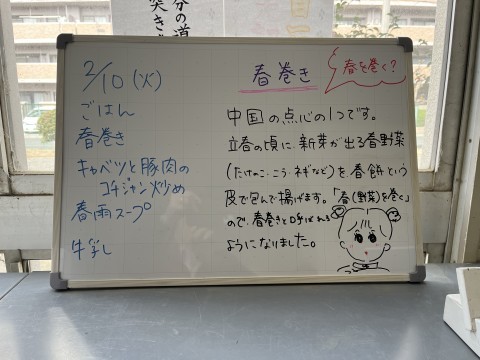 分の道
突き
2/10 (火)
ごはん
春巻き
キャベツと豚肉の
コチジャン炒め
春雨スープ
牛乳
春巻き
春を巻く?
中国の点心の1つです。
立春の頃に、新芽が出る春野菜
(たけのこ・こう・ネギなど)を春餅という
皮で包んで揚げます。「春(野菜)を巻く」
ので、春巻きと呼ばれる
ようになりました。